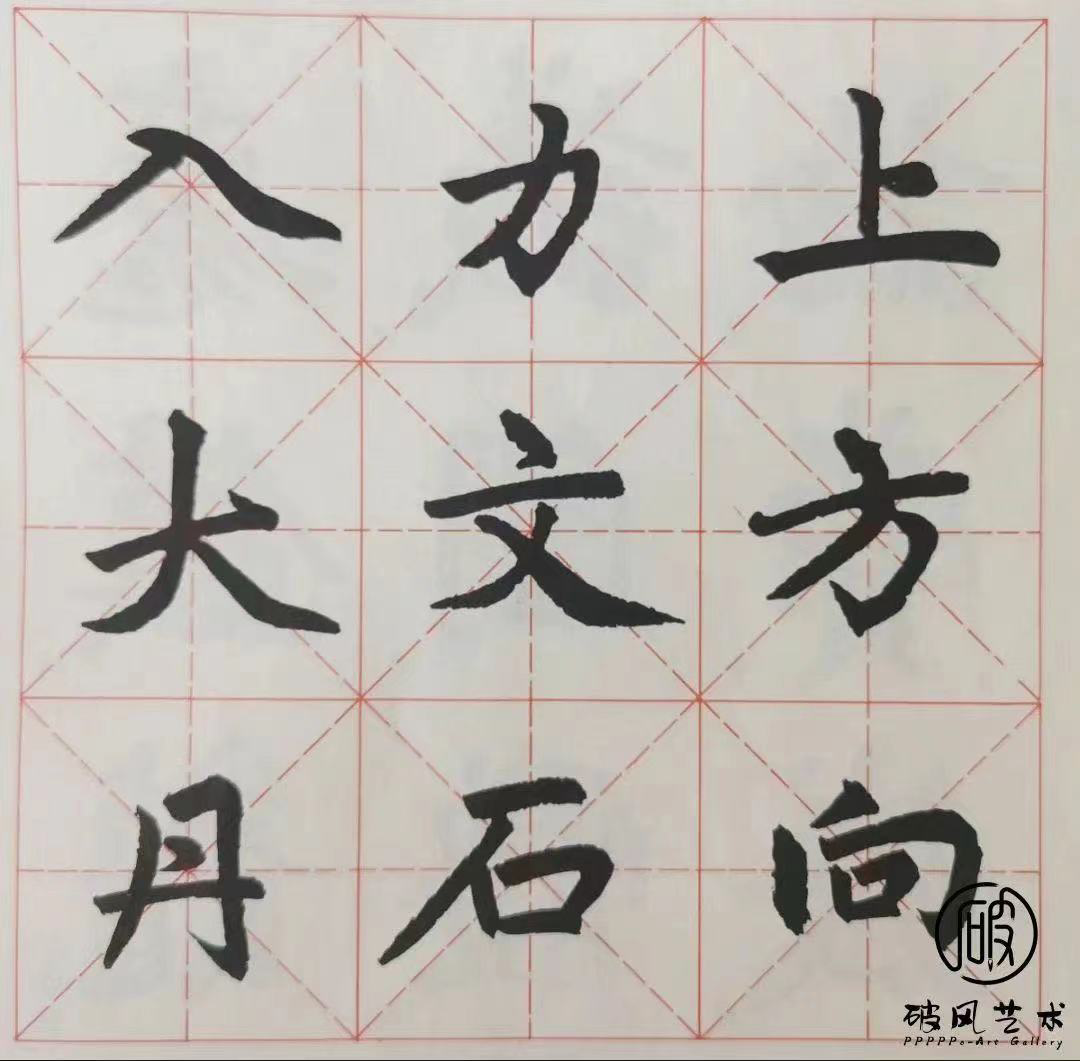 入力上
大文方
丹石向
破
破风艺术
PPPPPo-Art Gallery